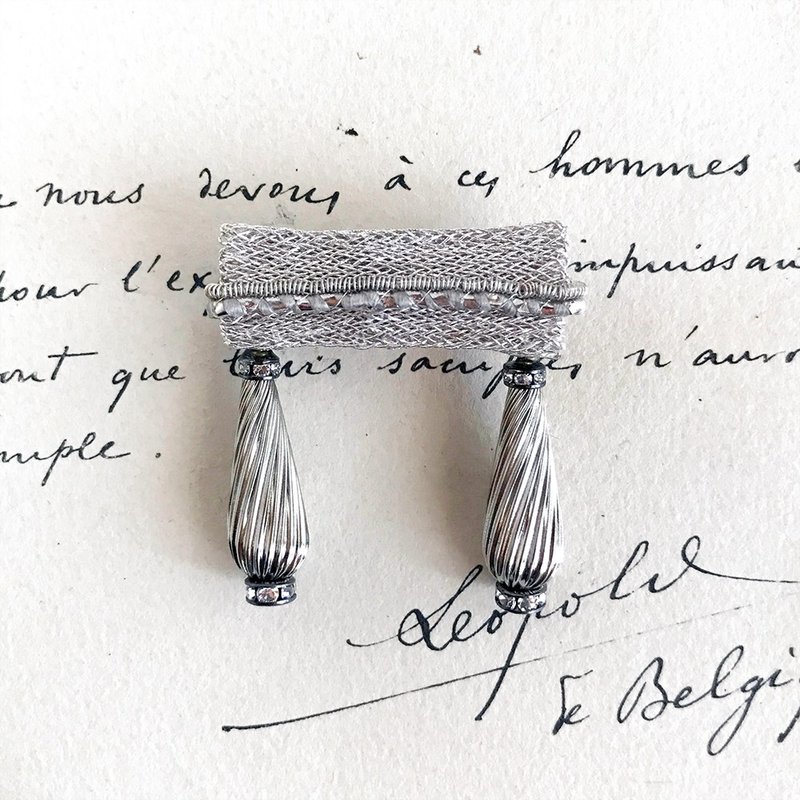 nous devons à ces hommes
pour l'ex impuissan
ont que leurs sacrifices n'auro
mple.
Leopold
de Belgi